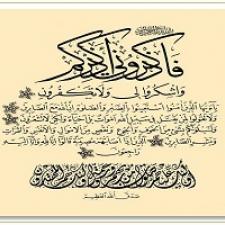 بسم الله الرحمن الرحيم
فاذكروني أذكركم
واشكروا لي ولا تكفرون
يا أيها الذين آمنوا استعينوا بالصبر والصلاة إن الله مع الصابرين
ولا تقولوا لمن يقتل في سبيل الله أموات بل أحياء ولكن لا تشعرون
ولنبلونكم بشيء من الخوف والجوع ونقص من الأموال والأنفس والثمرات
وبشر الصابرين الذين إذا أصابتهم مصيبة قالوا إنا لله وإنا إليه
راجعون
أولئك عليهم صلوات من ربهم ورحمة وأولئك هم المهتدون
صدق الله العظيم